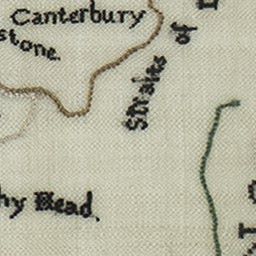 Canterbury
stone.
Straits of
hy Head.